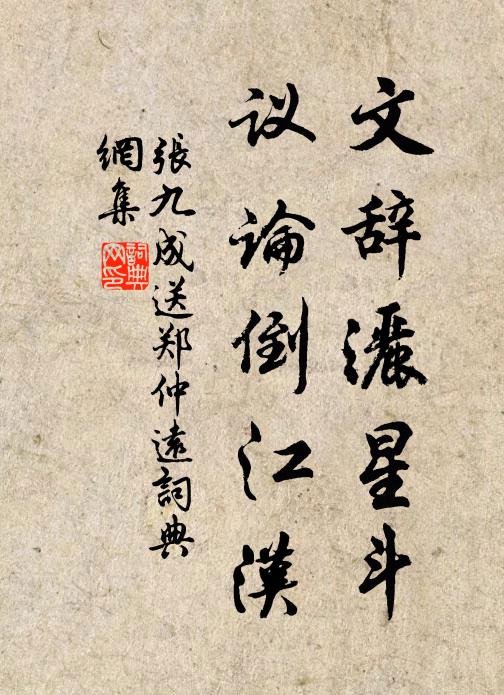 文辞灑星斗
议論倒江漢
張九成送郑仲遠詞典
網集
詞典
网印